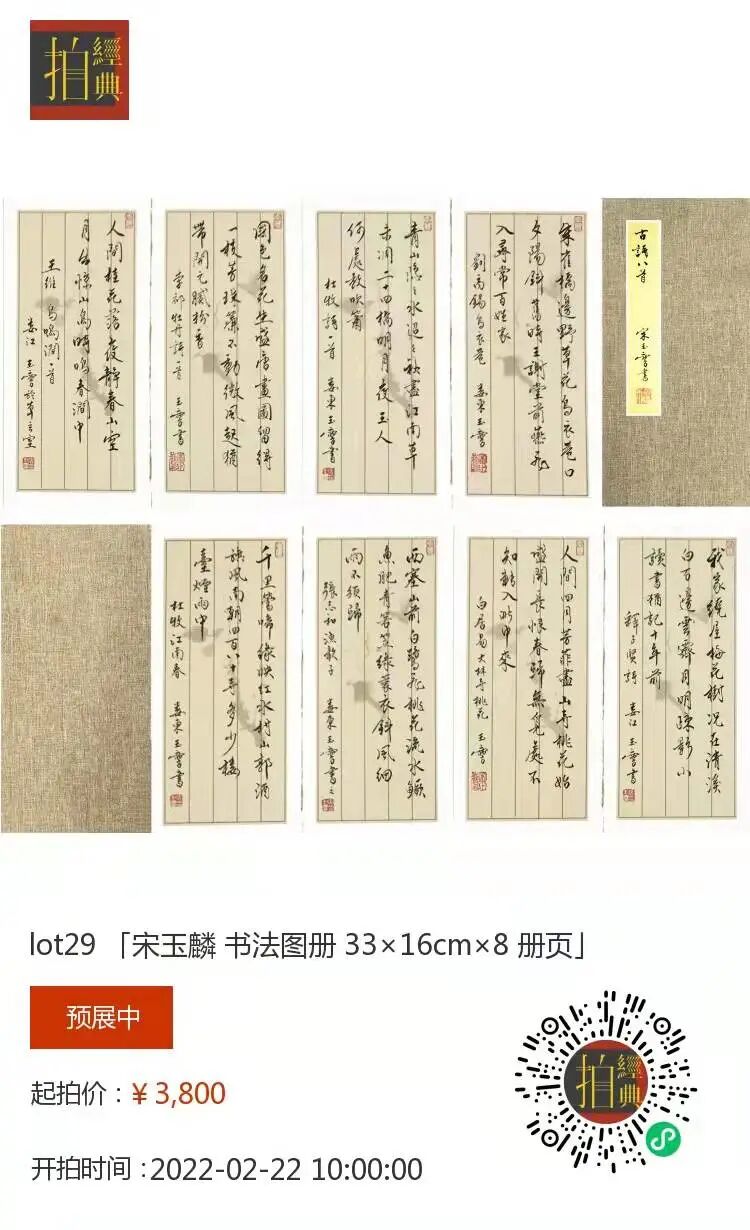 拍經典
古詩八首 宋玉麐書
朱雀橋邊野草花烏衣巷口
夕陽斜舊時王謝堂前燕飛
入尋常百姓家
劉禹錫烏衣巷 婁東玉麐
青山隱〻水迢〻秋盡江南草
未凋二十四橋明月夜玉人
何處教吹簫
杜牧詩一首 婁東玉麐書
國色名花生盛唐畫圖留得
一枝芳珠簾不動微風起猶
帶開元膩粉香
牡丹詩一首 玉麐書
人間桂花落夜靜春山空
月出驚山鳥時鳴春澗中
王維鳥鳴澗一首
婁江玉麐於草玄堂
我家繞屋梅花樹況在清溪
白石邊雲霽月明疎影小
讀書猶記十年前
釋子賢詩 婁江玉麐書
人間四月芳菲盡山寺桃花始
盛開長恨春歸無覓處不
知轉入此中來
白居易大林寺桃花 玉麐
西塞山前白鷺飛桃花流水鱖
魚肥青箬笠綠蓑衣斜風細
雨不須歸
張志和漁歌子 婁東玉麐書之
千里鶯啼綠映紅水村山郭酒
旗風南朝四百八十寺多少樓
臺煙雨中
杜牧江南春 婁東玉麐書
lot29 「宋玉麟 书法图册 33×16cm×8 册页」
预展中
起拍价：¥ 3,800
开拍时间：2022-02-22 10:00:00
拍經典